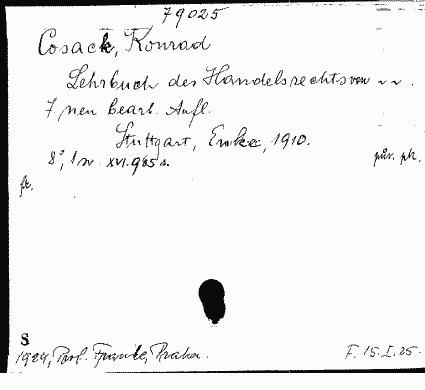 79025
Cosack, Konrad
Lehrbuch des Handelsrechts von ~ ~ .
7, neu bearb. Aufl.
Stuttgart, Enke, 1910.
8°, 1 w. XVI. 985 s.
pův. pk.
fr.
S
1924, Prof. Frankl, Praha.
F. 15. I. 25.